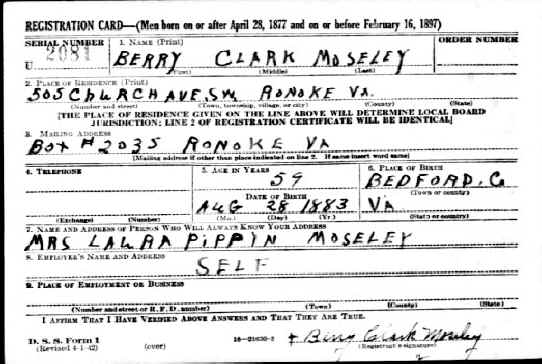 REGISTRATION CARD—(Men born on or after April 28, 1877 and on or before February 16, 1897)
SERIAL NUMBER 1. NAME (Print) ORDER NUMBER
U 2081 BERRY CLARK MOSELEY
(First) (Middle) (Last)
2. PLACE OF RESIDENCE (Print)
505 CHURCH AVE, SW, RONOKE VA.
(Number and street) (Town, township, village, or city) (County) (State)
[THE PLACE OF RESIDENCE GIVEN ON THE LINE ABOVE WILL DETERMINE LOCAL BOARD
JURISDICTION; LINE 2 OF REGISTRATION CERTIFICATE WILL BE IDENTICAL]
3. MAILING ADDRESS
BOX # 2035 RONOKE VA
[Mailing address if other than place indicated on line 2. If same insert word same]
4. TELEPHONE 5. AGE IN YEARS 6. PLACE OF BIRTH
59 BEDFORD. Co
DATE OF BIRTH (Town or county)
AUG 28 1883 VA
(Exchange) (Number) (Mo.) (Day) (Yr.) (State or country)
7. NAME AND ADDRESS OF PERSON WHO WILL ALWAYS KNOW YOUR ADDRESS
MRS LAURA PIPPIN MOSELEY
8. EMPLOYER'S NAME AND ADDRESS
SELF
9. PLACE OF EMPLOYMENT OR BUSINESS
(Number and street or R. F. D. number) (Town) (County) (State)
I AFFIRM THAT I HAVE VERIFIED ABOVE ANSWERS AND THAT THEY ARE TRUE.
D. S. S. Form 1 16—21630-2 Berry Clark Moseley
(Revised 4-1-42) (over) (Registrant's signature)